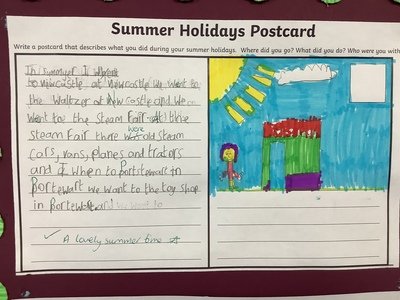 Summer Holidays Postcard
Write a postcard that describes what you did during your summer holidays. Where did you go? What did you do? Who were you with
This summer I went
to newcastle at newcastle we went to
the waltzer at newcastle and we
went to the steam fair at the
steam fair there were old steam
cars, vans, planes and tractors
and I when to portstewart in
portewart we want to the toy shop
in portewart and we went to
✓ A lovely summer time